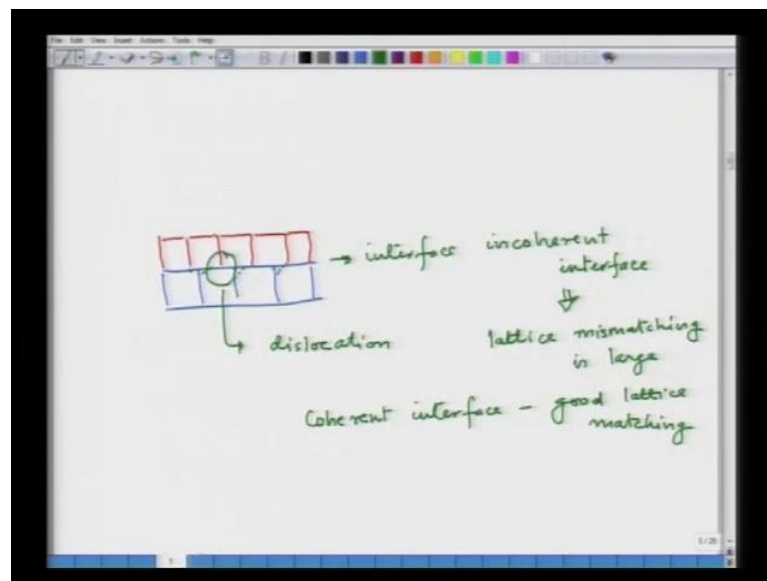 File Edit View Insert Actions Tools Help
B I
→ interface incoherent
interface
⇓
lattice mismatching
is large
dislocation
Coherent interface - good lattice
matching
5/25